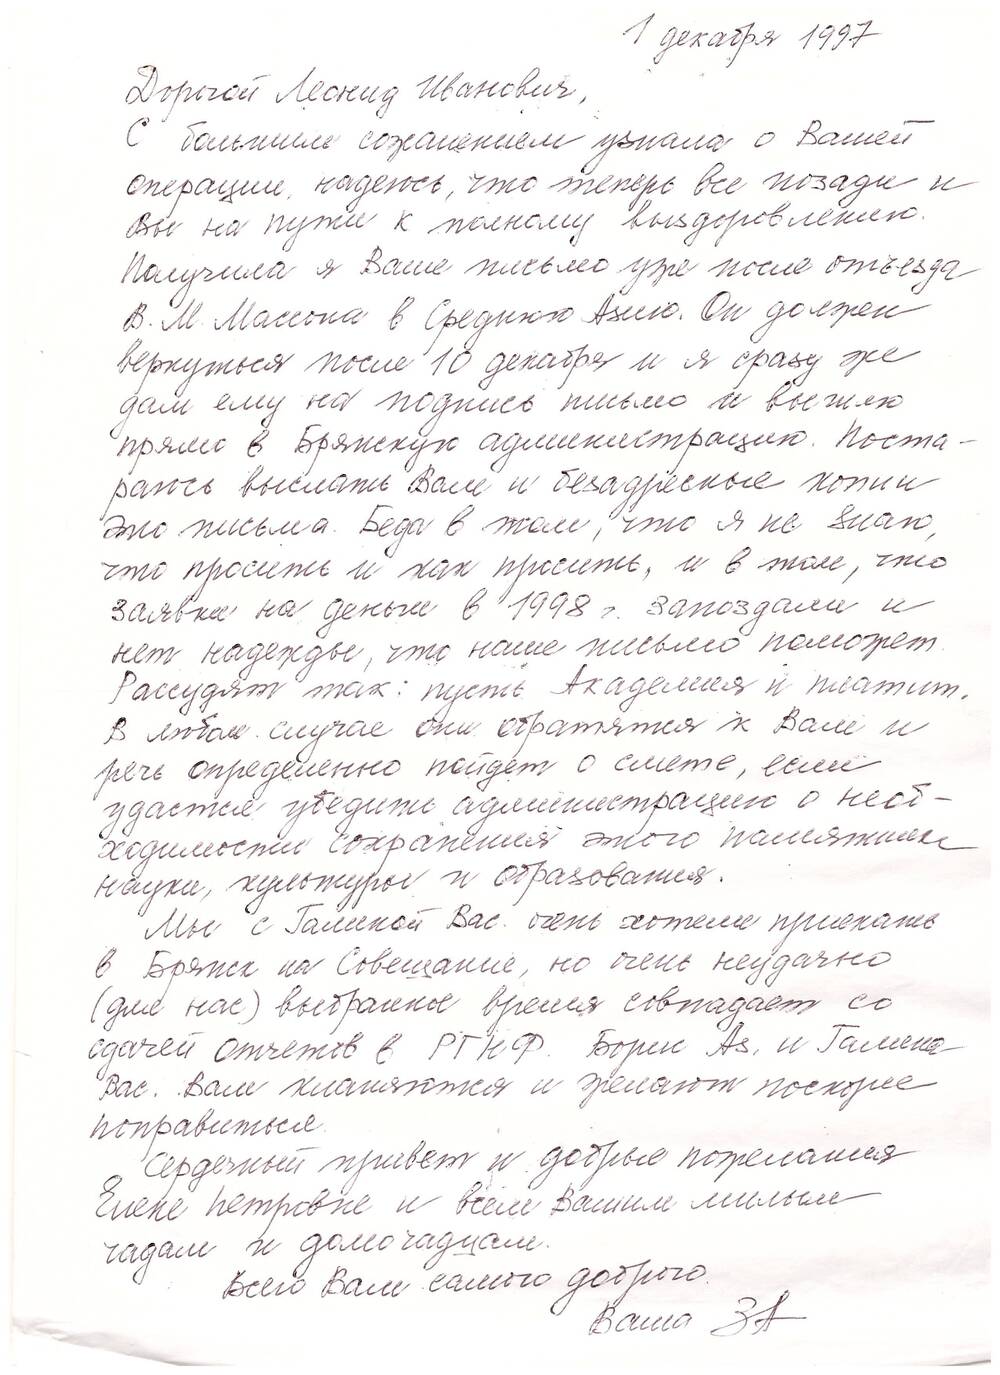 1 декабря 1997
Дорогой Леонид Иванович,
С большим сожалением узнала о Вашей
операции, надеюсь, что теперь все позади и
Вы на пути к полному выздоровлению.
Получила я Ваше письмо уже после отъезда
В. М. Массона в Среднюю Азию. Он должен
вернуться после 10 декабря и я сразу же
дам ему на подпись письмо и вышлю
прямо в Брянскую администрацию. Поста-
раюсь выслать Вам и безадресные копии
это письма. Беда в том, что я не знаю,
что просить и как просить, и в том, что
заявки на деньги в 1998 г. запоздали и
нет надежды, что наше письмо поможет.
Рассудят так: пусть Академия и платит.
В любом случае они обратятся к Вам и
речь определенно пойдет о смете, если
удастся убедить администрацию о необ-
ходимости сохранения этого памятника
науки, культуры и образования.
Мы с Галиной Вас. очень хотели приехать
в Брянск на Совещание, но очень неудачно
(для нас) выбранное время совпадает со
сдачей отчетов в РГНФ. Борис Аз. и Галина
Вас. Вам кланяются и желают поскорее
поправиться.
Сердечный привет и добрые пожелания
Елене Петровне и всем Вашим милым
чадам и домочадцам.
Всего Вам самого доброго.
Ваша ЗА